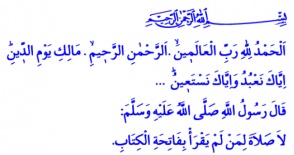 بِسْمِ اللّٰهِ الرَّحْمٰنِ الرَّحِيمِ
اَلْحَمْدُ لِلّٰهِ رَبِّ الْعَالَمِينَۙ ﴿﴾ اَلرَّحْمٰنِ الرَّحِيمِۙ ﴿﴾ مَالِكِ يَوْمِ الدِّينِۜ
اِيَّاكَ نَعْبُدُ وَاِيَّاكَ نَسْتَعِينُۜ ...
قَالَ رَسُولُ اللّٰهِ صَلَّى اللّٰهُ عَلَيْهِ وَسَلَّمَ:
لاَ صَلاَةَ لِمَنْ لَمْ يَقْرَأْ بِفَاتِحَةِ الْكِتَابِ.